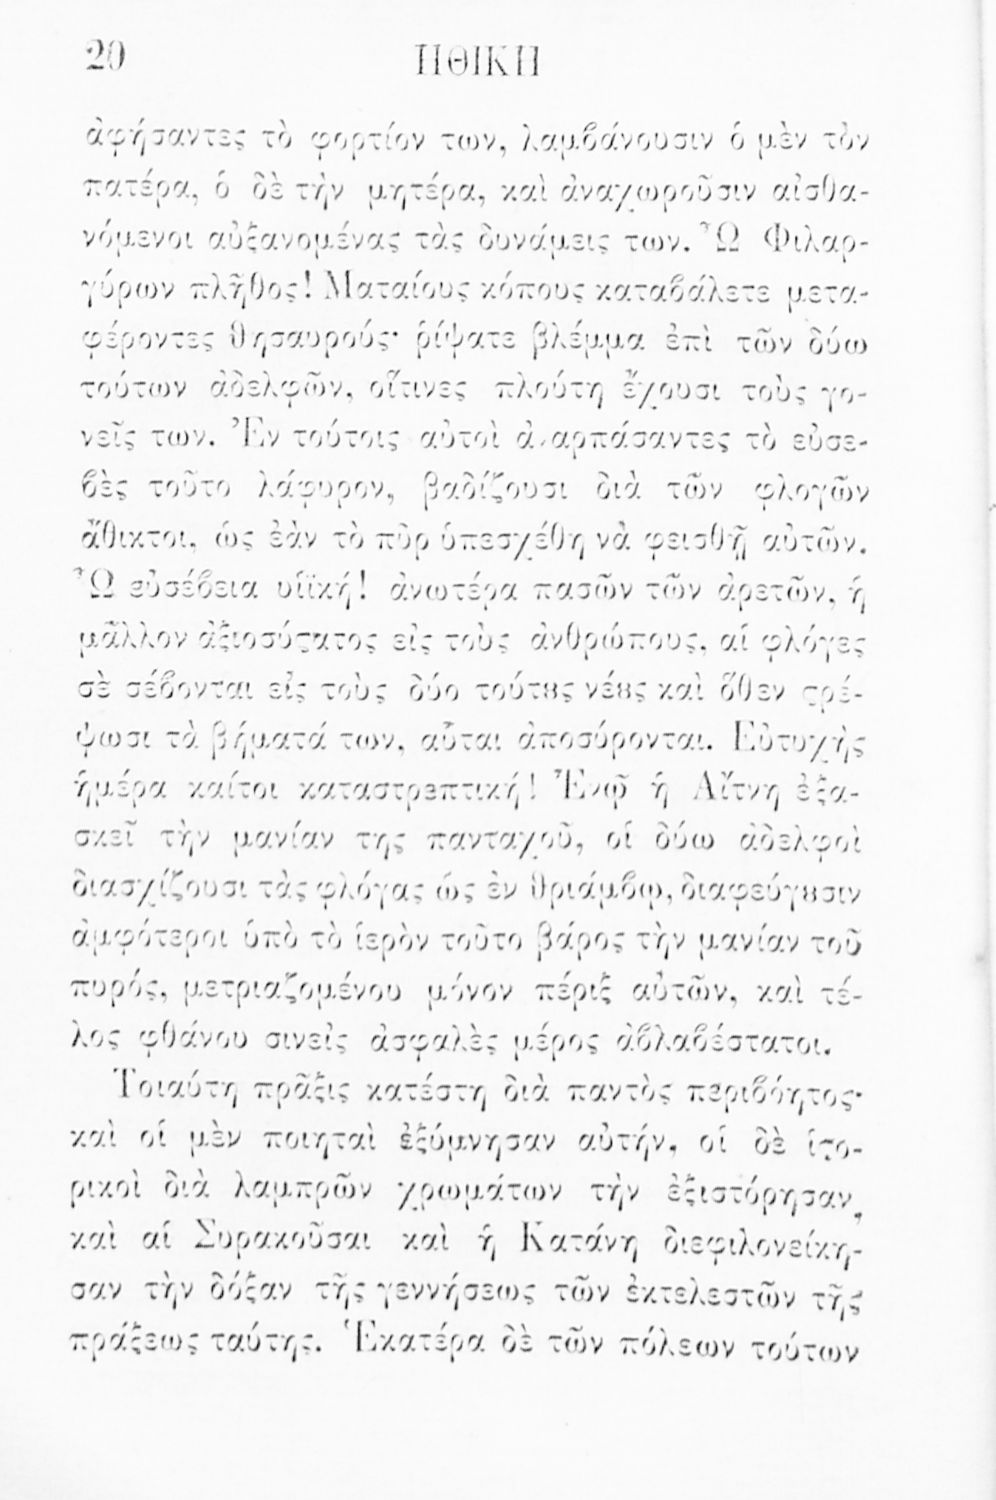 20 ΗΘΙΚΗ
ἀφήσαντες τὸ φορτίον των, λαμβάνουσιν ὁ μὲν τὸν
πατέρα, ὁ δὲ τὴν μητέρα, καὶ ἀναχωροῦσιν αἰσθα-
νόμενοι αὐξανομένας τὰς δυνάμεις των. Ὦ Φιλαρ-
γύρων πλῆθος! Ματαίους κόπους καταβάλετε μετα-
φέροντες θησαυρούς· ῥίψατε βλέμμα ἐπὶ τῶν δύω
τούτων ἀδελφῶν, οἵτινες πλούτη ἔχουσι τοὺς γο-
νεῖς των. Ἐν τούτοις αὐτοὶ ἁρπάσαντες τὸ εὐσε-
βὲς τοῦτο λάφυρον, βαδίζουσι διὰ τῶν φλογῶν
ἄθικτοι, ὡς ἐὰν τὸ πῦρ ὑπεσχέθη νὰ φεισθῇ αὐτῶν.
Ὦ εὐσέβεια υἱϊκή! ἀνωτέρα πασῶν τῶν ἀρετῶν, ἡ
μᾶλλον ἀξιοσύϛατος εἰς τοὺς ἀνθρώπους, αἱ φλόγες
σὲ σέβονται εἰς τοὺς δύο τούτȣς νέȣς καὶ ὅθεν ϛρέ-
ψωσι τὰ βήματά των, αὗται ἀποσύρονται. Εὐτυχὴς
ἡμέρα καίτοι καταστρεπτική! Ἐνῷ ἡ Αἴτνη ἐξα-
σκεῖ τὴν μανίαν της πανταχοῦ, οἱ δύω ἀδελφοὶ
διασχίζουσι τὰς φλόγας ὡς ἐν θριάμβῳ, διαφεύγȣσιν
ἀμφότεροι ὑπὸ τὸ ἱερὸν τοῦτο βάρος τὴν μανίαν τοῦ
πυρός, μετριαζομένου μόνον πέριξ αὐτῶν, καὶ τέ-
λος φθάνου σινεἰς ἀσφαλὲς μέρος ἀβλαβέστατοι.
Τοιαύτη πρᾶξις κατέστη διὰ παντὸς περιβόητος·
καὶ οἱ μὲν ποιηταὶ ἐξύμνησαν αὐτήν, οἱ δὲ ἱϛο-
ρικοὶ διὰ λαμπρῶν χρωμάτων τὴν ἐξιστόρησαν,
καὶ αἱ Συρακοῦσαι καὶ ἡ Κατάνη διεφιλονείκη-
σαν τὴν δόξαν τῆς γεννήσεως τῶν ἐκτελεστῶν τῆς
πράξεως ταύτης. Ἑκατέρα δὲ τῶν πόλεων τούτων